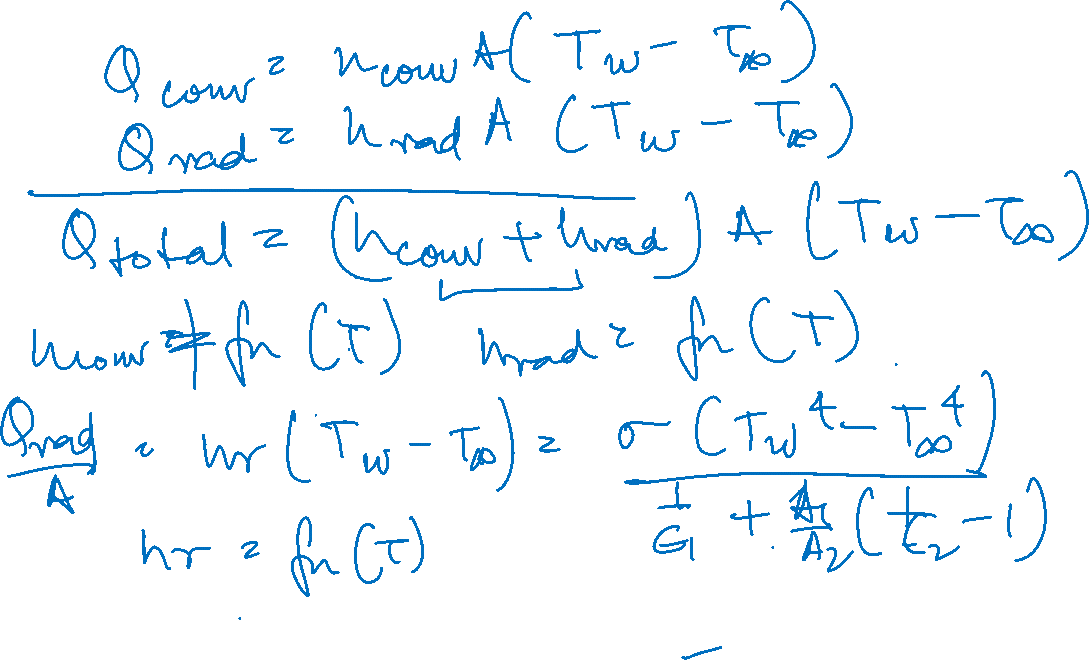 Q conv = h conv A ( T w - T ∞ )
Q rad = h rad A ( T w - T ∞ )
Q total = ( h conv + h rad ) A ( T w - T ∞ )
h conv ≠ fn ( T )   h rad = fn ( T )
Q rad / A = hr ( T w - T ∞ ) = σ ( T w ^4 - T ∞ ^4 ) / ( 1/ε1 + A1/A2 ( 1/ε2 - 1 ) )
hr = fn ( T )